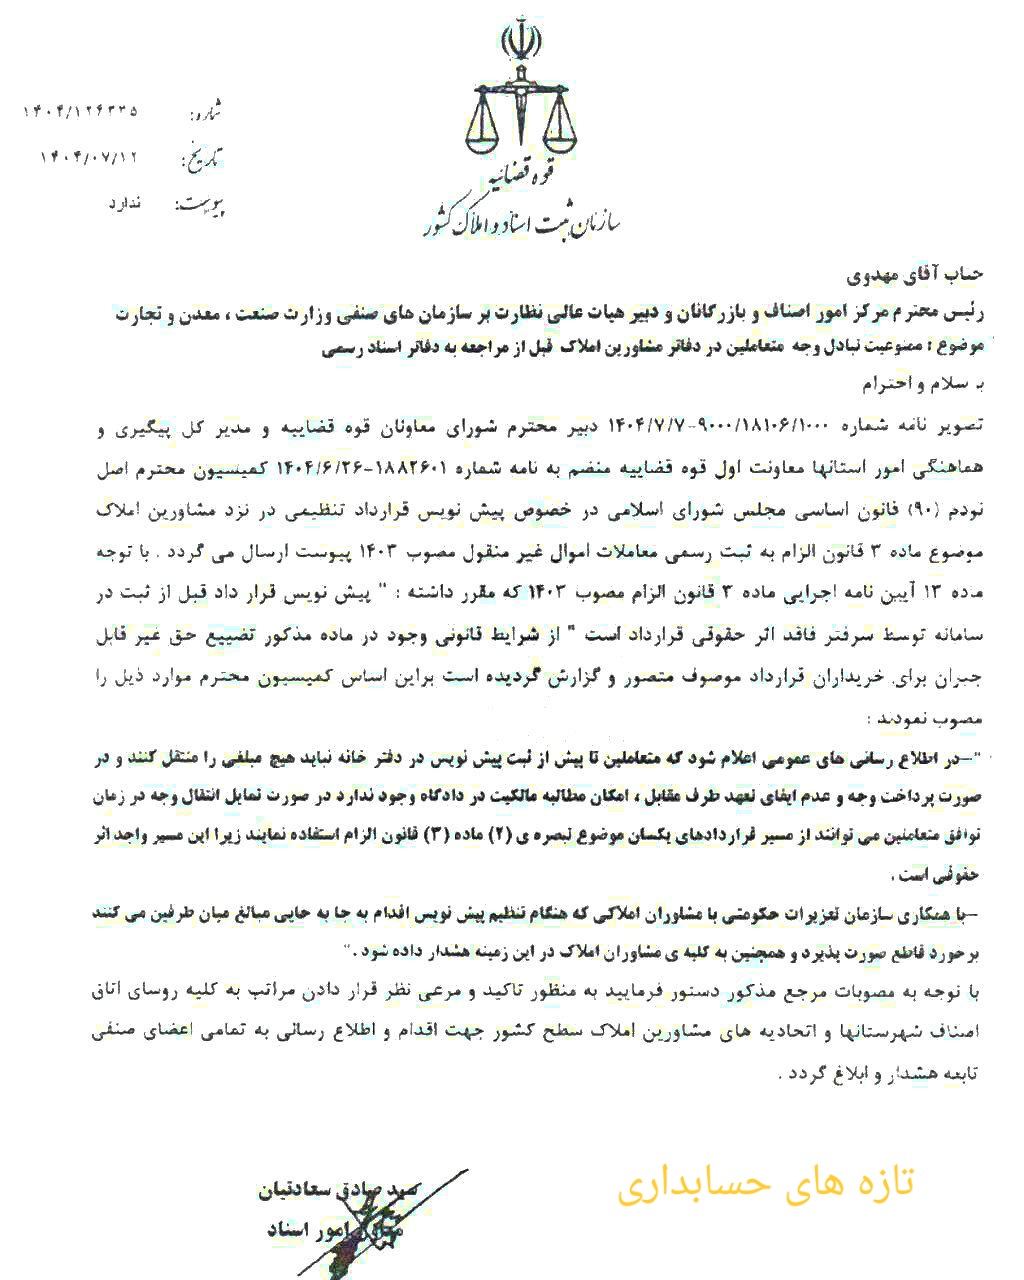 قوه قضائیه
سازمان ثبت اسناد و املاک کشور
شماره: ۱۴۰۴/۱۲۴۳۳۵
تاریخ: ۱۴۰۴/۰۷/۱۲
پیوست: ندارد
جناب آقای مهدوی
رئیس محترم مرکز امور اصناف و بازرگانان و دبیر هیات عالی نظارت بر سازمان های صنفی وزارت صنعت ، معدن و تجارت
موضوع : ممنوعیت تبادل وجه متعاملین در دفاتر مشاورین املاک قبل از مراجعه به دفاتر اسناد رسمی
با سلام و احترام
تصویر نامه شماره ۹۰۰۰/۱۸۱۰۶/۱۰۰۰-۱۴۰۴/۷/۷ دبیر محترم شورای معاونان قوه قضاییه و مدیر کل پیگیری و
هماهنگی امور استانها معاونت اول قوه قضاییه منضم به نامه شماره ۱۸۸۲۶۰۱-۱۴۰۴/۶/۲۶ کمیسیون محترم اصل
نودم (۹۰) قانون اساسی مجلس شورای اسلامی در خصوص پیش نویس قرارداد تنظیمی در نزد مشاورین املاک
موضوع ماده ۳ قانون الزام به ثبت رسمی معاملات اموال غیر منقول مصوب ۱۴۰۳ پیوست ارسال می گردد . با توجه
ماده ۱۳ آیین نامه اجرایی ماده ۳ قانون الزام مصوب ۱۴۰۳ که مقرر داشته : " پیش نویس قرار داد قبل از ثبت در
سامانه توسط سرفتر فاقد اثر حقوقی قرارداد است " از شرایط قانونی وجود در ماده مذکور تضییع حق غیر قابل
جبران برای خریداران قرارداد موصوف متصور و گزارش گردیده است براین اساس کمیسیون محترم موارد ذیل را
مصوب نمودند :
"-در اطلاع رسانی های عمومی اعلام شود که متعاملین تا پیش از ثبت پیش نویس در دفتر خانه نباید هیچ مبلغی را منتقل کنند و در
صورت پرداخت وجه و عدم ایفای تعهد طرف مقابل ، امکان مطالبه مالکیت در دادگاه وجود ندارد در صورت تمایل انتقال وجه در زمان
توافق متعاملین می توانند از مسیر قراردادهای یکسان موضوع تبصره ی (۲) ماده (۳) قانون الزام استفاده نمایند زیرا این مسیر واجد اثر
حقوقی است .
-با همکاری سازمان تعزیرات حکومتی با مشاوران املاکی که هنگام تنظیم پیش نویس اقدام به جا به جایی مبالغ میان طرفین می کنند
برخورد قاطع صورت پذیرد و همچنین به کلیه ی مشاوران املاک در این زمینه هشدار داده شود ."
با توجه به مصوبات مرجع مذکور دستور فرمایید به منظور تاکید و مرعی نظر قرار دادن مراتب به کلیه روسای اتاق
اصناف شهرستانها و اتحادیه های مشاورین املاک سطح کشور جهت اقدام و اطلاع رسانی به تمامی اعضای صنفی
تابعه هشدار و ابلاغ گردد .
سید صادق سعادتیان
معاون امور اسناد
تازه های حسابداری